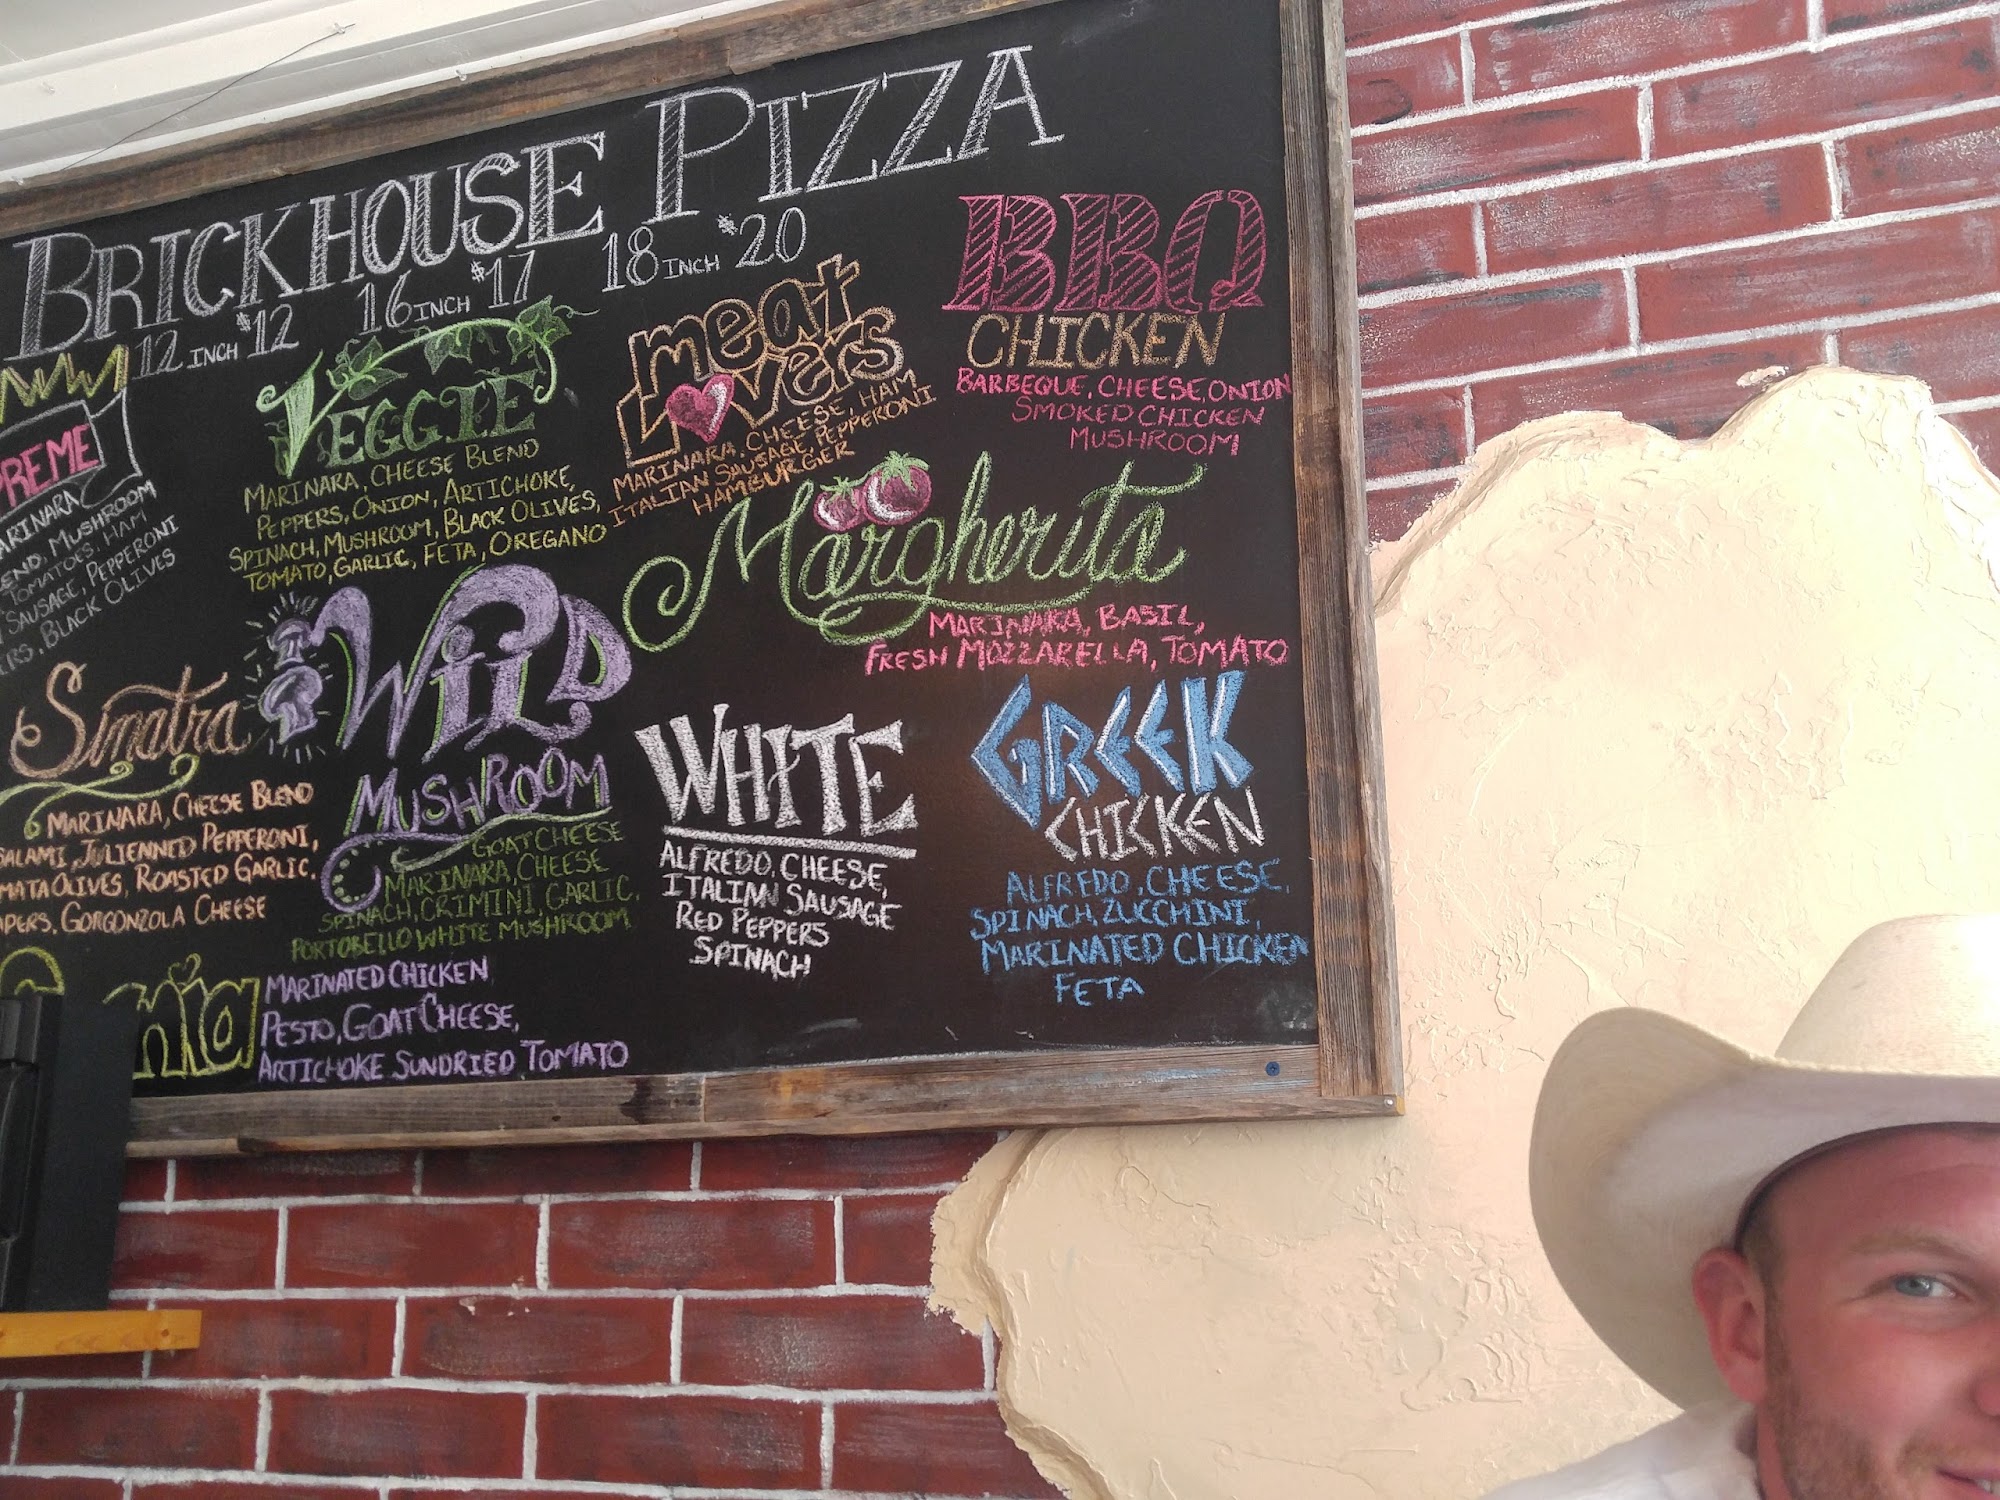 BRICKHOUSE PIZZA
12 INCH $12 16 INCH $17 18 INCH $20
PREME
ARINARA
END, MUSHROOM
TOMATOES, HAM
SAUSAGE, PEPPERONI
RS, BLACK OLIVES
VEGGIE
MARINARA, CHEESE BLEND
PEPPERS, ONION, ARTICHOKE,
SPINACH, MUSHROOM, BLACK OLIVES,
TOMATO, GARLIC, FETA, OREGANO
meat
Lovers
MARINARA, CHEESE, HAM
ITALIAN SAUSAGE, PEPPERONI
HAMBURGER
BBQ
CHICKEN
BARBEQUE, CHEESE, ONION
SMOKED CHICKEN
MUSHROOM
Margherita
MARINARA, BASIL,
FRESH MOZZARELLA, TOMATO
Sinatra
MARINARA, CHEESE BLEND
SALAMI, JULIENNED PEPPERONI,
MATA OLIVES, ROASTED GARLIC,
APERS, GORGONZOLA CHEESE
WILD
MUSHROOM
GOAT CHEESE
MARINARA, CHEESE
SPINACH, CRIMINI GARLIC,
PORTOBELLO WHITE MUSHROOM
WHITE
ALFREDO, CHEESE,
ITALINN SAUSAGE
RED PEPPERS
SPINACH
GREEK
CHICKEN
ALFREDO, CHEESE,
SPINACH, ZUCCHINI,
MARINATED CHICKEN
FETA
nia
MARINATED CHICKEN,
PESTO, GOAT CHEESE,
ARTICHOKE SUNDRIED TOMATO